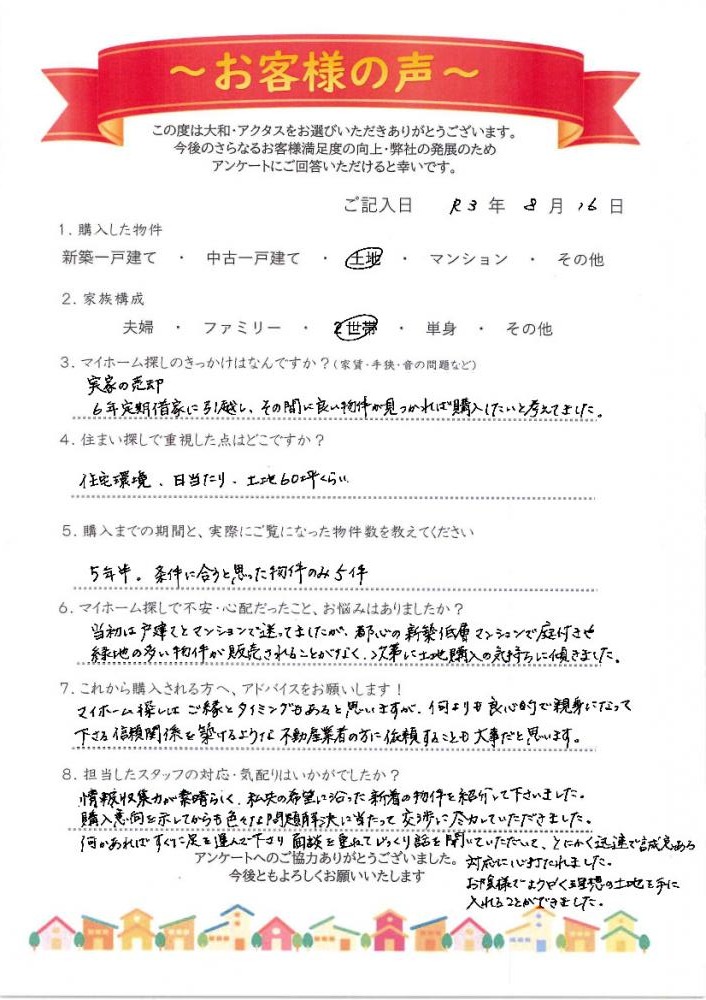 ～お客様の声～
この度は大和・アクタスをお選びいただきありがとうございます。
今後のさらなるお客様満足度の向上・弊社の発展のため
アンケートにご回答いただけると幸いです。
ご記入日 R3 年 8 月 16 日
1. 購入した物件
新築一戸建て ・ 中古一戸建て ・ 土地 ・ マンション ・ その他
2. 家族構成
夫婦 ・ ファミリー ・ 2世帯 ・ 単身 ・ その他
3. マイホーム探しのきっかけはなんですか？（家賃・手狭・音の問題など）
実家の売却
6年定期借家に引越し、その間に良い物件が見つかれば購入したいと考えてました。
4. 住まい探しで重視した点はどこですか？
住宅環境、日当たり、土地60坪くらい
5. 購入までの期間と、実際にご覧になった物件数を教えてください
5年半。条件に合うと思った物件のみ5件
6. マイホーム探しで不安・心配だったこと、お悩みはありましたか？
当初は戸建てとマンションで迷ってましたが、都心の新築低層マンションで庭付きや
緑地の多い物件が販売されることがなく、次第に土地購入の気持ちに傾きました。
7. これから購入される方へ、アドバイスをお願いします！
マイホーム探しはご縁とタイミングもあると思いますが、何よりも良心的で親身になって
下さる信頼関係を築けるような不動産業者の方に依頼することも大事だと思います。
8. 担当したスタッフの対応・気配りはいかがでしたか？
情報収集力が素晴らしく、私共の希望に沿った新着の物件を紹介して下さいました。
購入意向を示してからも色々な問題解決に当たって交渉に尽力していただきました。
何かあればすぐに足を運んで下さり面談を重ねてじっくり話を聞いていただいて、とにかく迅速で誠意ある
対応に心打たれました。
お陰様でようやく理想の土地を手に
入れることができました。
アンケートへのご協力ありがとうございました。
今後ともよろしくお願いいたします